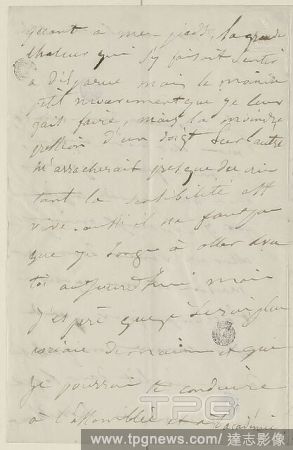 quant à mes pieds, la grande
chaleur qui s'y faisait sentir
a disparue mais le moindre
petit mouvement que je leur
fait faire, mais la moindre
pression d'un doigt sur l'autre
m'arracherait presque des cris
tant la sensibilité est
vive. il ne faut pas
que je songe à aller avec
toi aujourd'hui mais
j'espère que je serai plus
demain et que
je pourrai te conduire
à l'Assemblée et à l'académie
TPG
www.tpgnews.com/達志影像